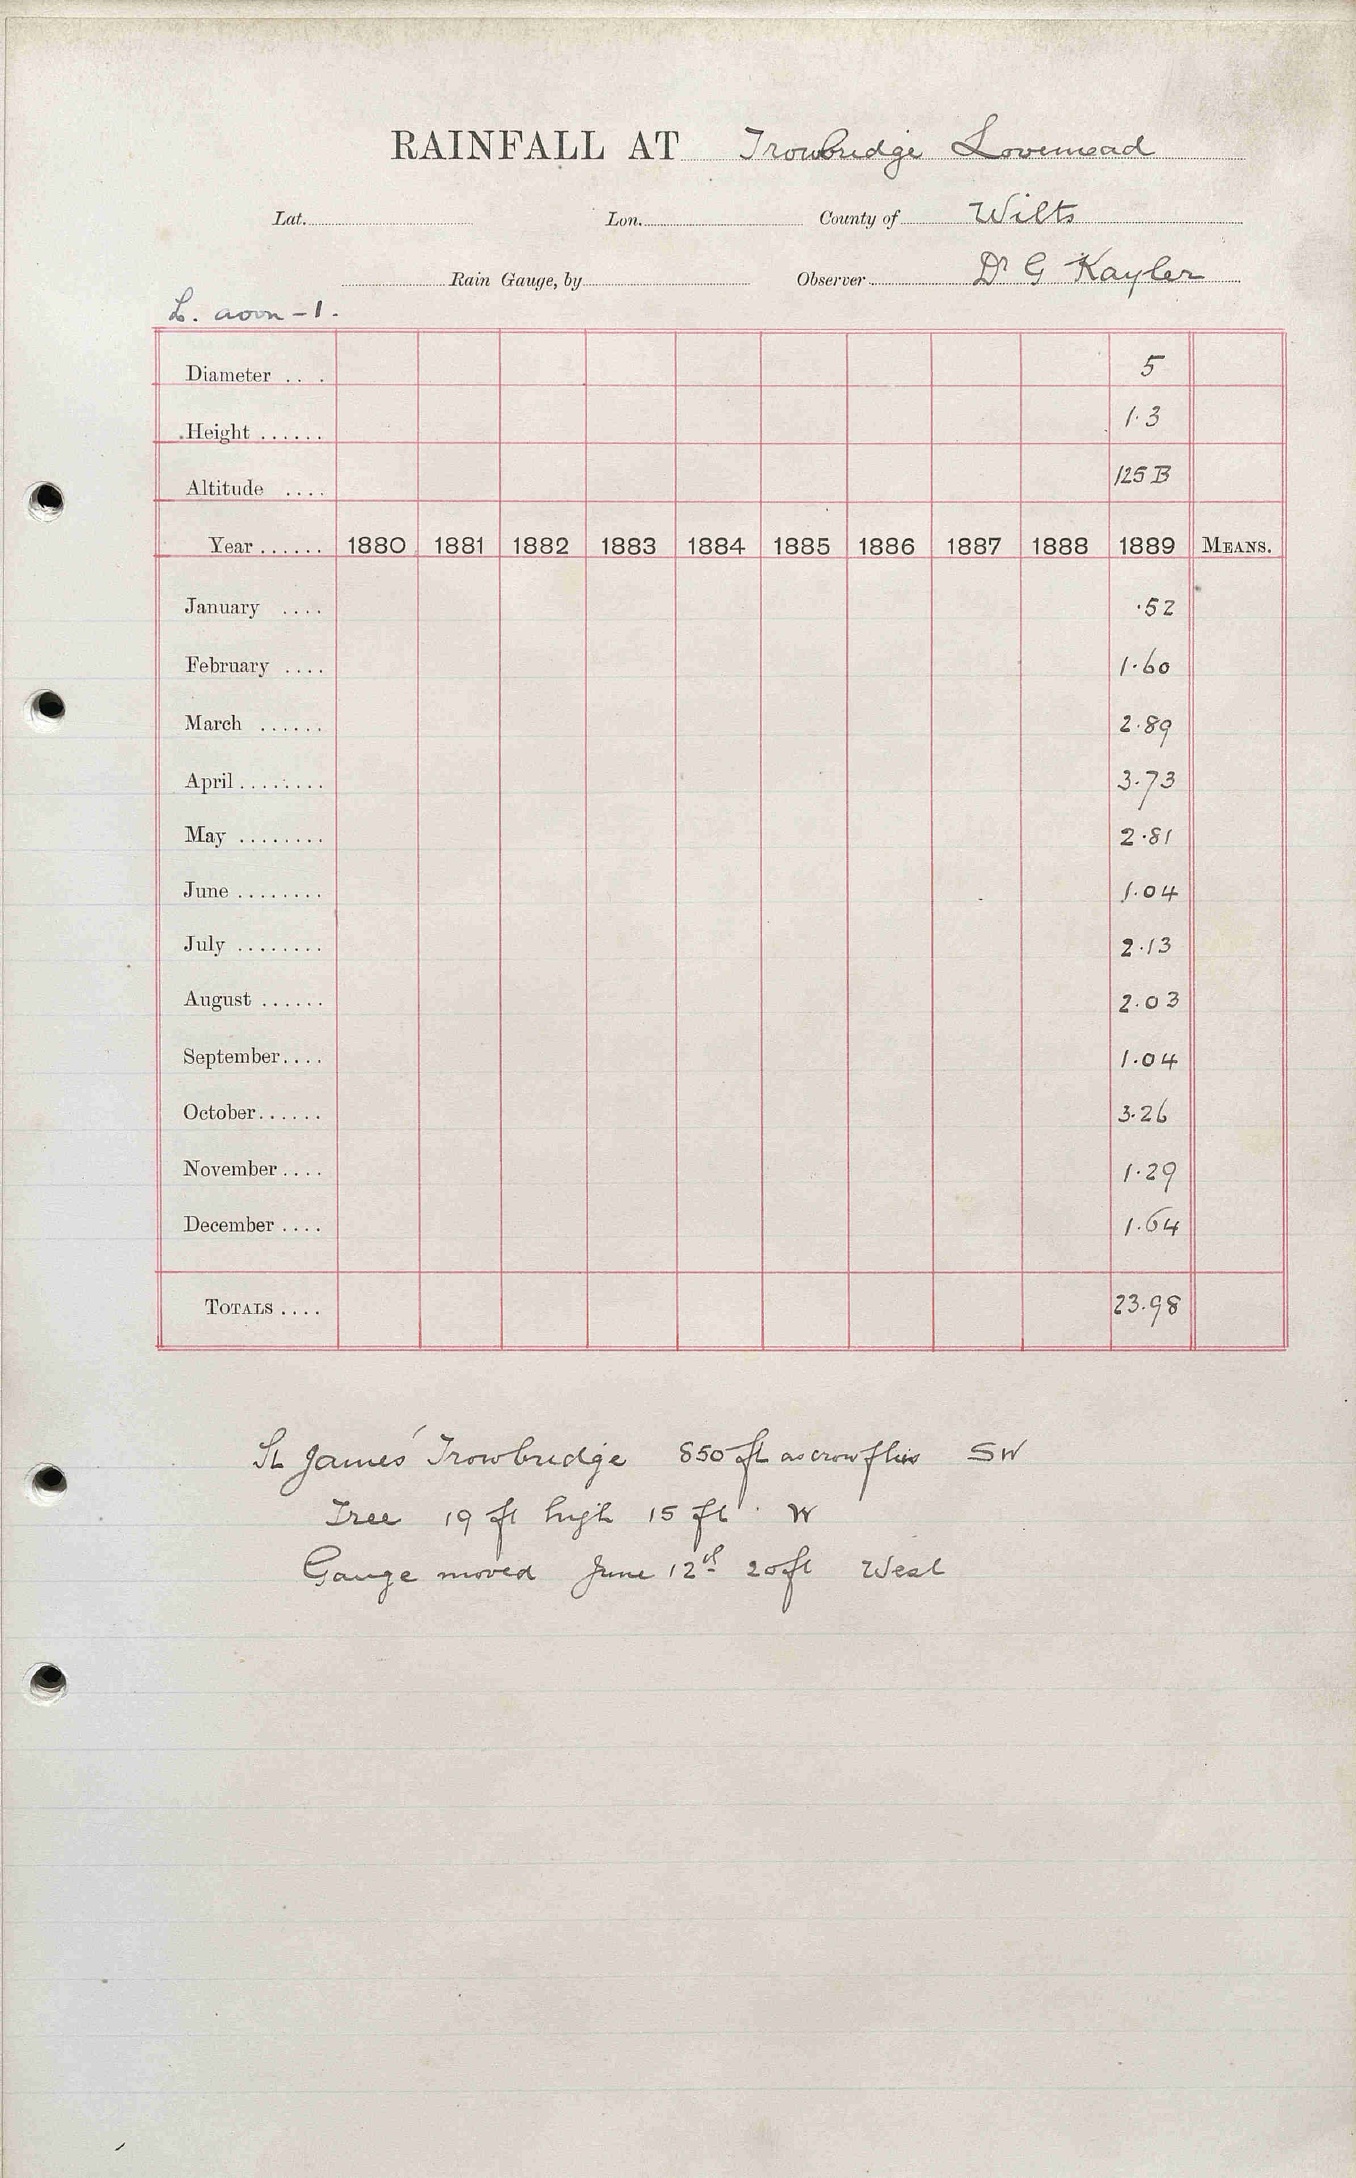 RAINFALL AT Trowbridge Lovemead
Lat. Lon. County of Wilts
Rain Gauge, by Observer Dr G Kayler
L. avon - 1.
Diameter .... 5
Height ...... 1.3
Altitude .... 125 B
Year ...... 1880 1881 1882 1883 1884 1885 1886 1887 1888 1889 MEANS.
January .... .52
February .... 1.60
March ...... 2.89
April ........ 3.73
May ........ 2.81
June ........ 1.04
July ........ 2.13
August ...... 2.03
September .... 1.04
October ...... 3.26
November .... 1.29
December .... 1.64
TOTALS .... 23.98
St James' Trowbridge 850 ft as crow flies SW
Tree 19 ft high 15 ft W
Gauge moved June 12th 20 ft West